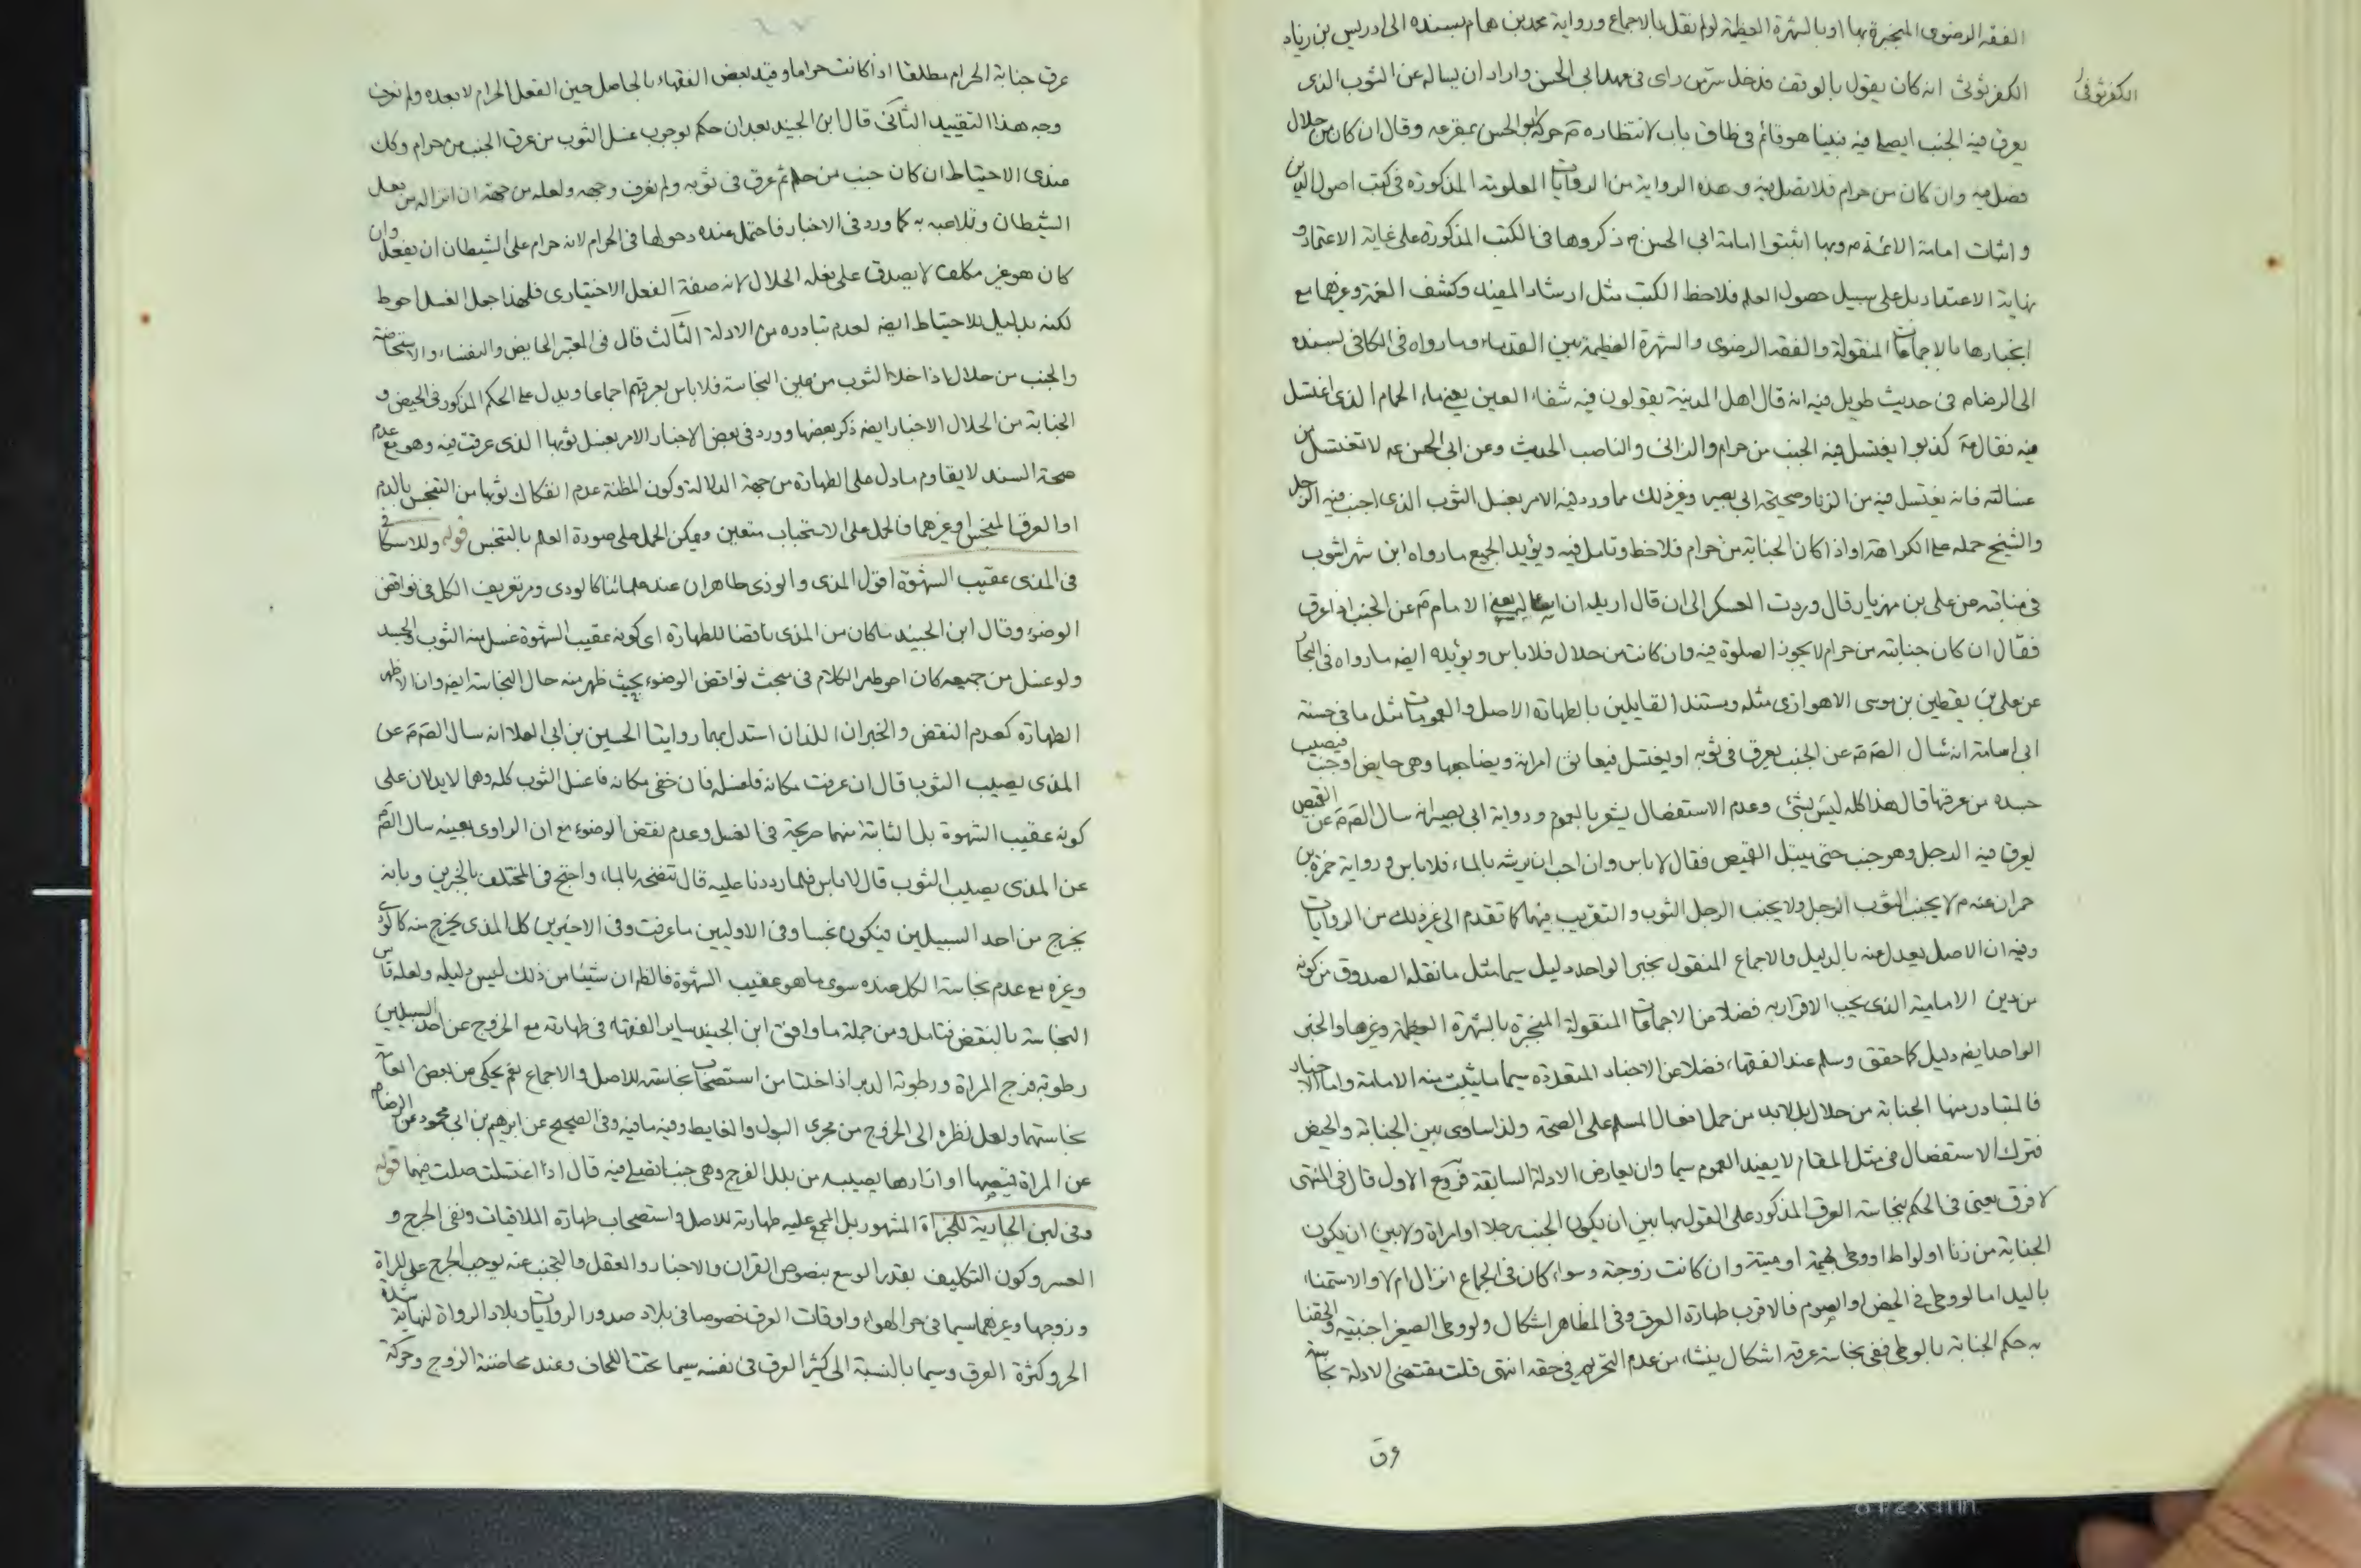 الفقه الرضوى المنجبرة بها او بالشهرة العظيمة لو لم نقل بالاجماع ورواية محمد بن همام بسنده الى ادريس بن زياد
الكفرثوثى انه كان يقول بالوقف فدخل سر من راى فى عهد ابى الحسن واراد ان يساله عن الثوب الذى
الكفرثوثى
يعرق فيه الجنب ايصلى فيه فبينا هو قائم فى طاق باب لانتظاره ع حركه ابو الحسن بمقرعه وقال ان كان من حلال
فصل فيه وان كان من حرام فلا تصل فيه وهذه الرواية من الروايات المعلومة المذكورة فى كتب اصول الدين
واثبات امامة الائمة م وبها اثبتوا امامة ابى الحسن م ذكروها فى الكتب المذكورة على غاية الاعتماد و
نهاية الاعتداد بل على سبيل حصول العلم فلاحظ الكتب مثل ارشاد المفيد وكشف الغمة وغيرهما مع
انجبارها بالاجماعات المنقولة والفقه الرضوى والشهرة العظيمة بين القدماء وما رواه فى الكافى بسنده
الى الرضا م فى حديث طويل فيه انه قال اهل المدينة يقولون فيه شفاء العين يعنى ماء الحمام الذى اغتسل
فيه فقال مه كذبوا يغتسل فيه الجنب من حرام والزانى والناصب الحديث وعن ابى الحسن عه لا تغتسل من
غسالته فانه يغتسل فيه من الزنا وصحيحة ابى بصير وغير ذلك مما ورد فيه الامر بغسل الثوب الذى اجنب فيه الرجل
والشيخ حمله على الكراهة او اذا كان الجنابة من حرام فلاحظ وتامل فيه ويؤيد الجميع ما رواه ابن شهراشوب
فى مناقبه عن على بن مهزيار قال وردت العسكر الى ان قال اريد ان اساله يعنى الامام ع عن الجنب اذا عرق
فقال ان كان جنابته من حرام لا يجوز الصلوة فيه وان كانت من حلال فلا باس ويؤيده ايضه ما رواه فى البحا
عن على بن يقطين بن موسى الاهوازى مثله ومستند القايلين بالطهارة الاصل والعمومات مثل ما فى حسنة
ابى اسامة انه سال الصم عن الجنب يعرق فى ثوبه او يغتسل فيعانق امراته ويضاجعها وهى حايض او جنب فيصيب
جسده من عرقها قال هذا كله ليس بشئ وعدم الاستفصال يشعر بالعموم ورواية ابى بصير انه سال الصم عن القميص
يعرق فيه الرجل وهو جنب حتى يبتل القميص فقال لا باس وان احب ان يرشه بالماء فلا باس ورواية حمزة بن
حمران عنه م لا يجنب الثوب الرجل ولا يجنب الرجل الثوب والتقريب فيهما كما تقدم الى غير ذلك من الروايات
وفيه ان الاصل يعدل عنه بالدليل والاجماع المنقول بخبر الواحد دليل سيما مثل ما نقله الصدوق من كونه
من دين الامامية الذى يجب الاقرار به فضلا عن الاجماعات المنقولة المنجبرة بالشهرة العظيمة وغيرها والخبر
الواحد ايضه دليل كما حقق وسلم عند الفقهاء فضلا عن الاخبار المتعددة سيما ما يثبت منه الامامة واما الاخبار
فالمتبادر منها الجنابة من حلال بل لابد من حمل افعال المسلم على الصحة ولذا ساوى بين الجنابة والحيض
فترك الاستفصال فى مثل المقام لا يفيد العموم سيما وان يعارض الادلة السابقة فروع الاول قال فى المنتهى
لا فرق يعنى فى الحكم بنجاسة العرق المذكور على القول بها بين ان يكون الجنب رجلا او امراة ولا بين ان يكون
الجنابة من زنا او لواط او وطى بهيمة او ميتة وان كانت زوجة وسواء كان فى الجماع انزال ام لا والاستمناء
باليد اما لو وطى فى الحيض او الصوم فالاقرب طهارة العرق وفى المظاهر اشكال ولو وطى الصغير اجنبية والحقنا
به حكم الجنابة بالوطى ففى نجاسة عرقه اشكال ينشاء من عدم التحريم فى حقه انتهى قلت مقتضى الادلة نجاسة
عرق
عرق جنابة الحرام مطلقا اذا كانت حراما وقيد بعض الفقهاء بالحاصل حين الفعل الحرام لا بعده ولم نعرف
وجه هذا التقييد الثانى قال ابن الجنيد بعد ان حكم بوجوب غسل الثوب من عرق الجنب من حرام وكك
عندى الاحتياط ان كان جنب من حلم ثم عرق فى ثوبه ولم نعرف وجهه ولعله من جهة ان انزاله من فعل
الشيطان وتلاعبه به كما ورد فى الاخبار فاحتمل عنده دخولها فى الحرام لانه حرام على الشيطان ان يفعل وان
كان هو غير مكلف لا يصدق على فعله الحلال لانه صفة الفعل الاختيارى فلهذا جعل الغسل احوط
لكنه بدليل للاحتياط ايضه لعدم تبادره من الادلة الثالث قال فى المعتبر الحايض والنفساء والاستحاضة
والجنب من حلال اذا خلا الثوب من عين النجاسة فلا باس بعرقهم اجماعا ويدل على الحكم المذكور فى الحيض و
الجنابة من الحلال الاخبار ايضه ذكر بعضها وورد فى بعض الاخبار الامر بغسل ثوبها الذى عرقت فيه وهو مع عدم
صحة السند لا يقاوم ما دل على الطهارة من جهة الدلالة وكون المظنة عدم انفكاك ثوبها من التنجس بالدم
او العرق المنجس او غيرهما فالحمل على الاستحباب متعين ويمكن الحمل على صورة العلم بالتنجس قوله وللاسكافى
فى المذى عقيب الشهوة اقول المذى والوذى طاهران عند علمائنا كالودى ومر تعريف الكل فى نواقض
الوضوء وقال ابن الجنيد ما كان من المذى ناقضا للطهارة اى كونه عقيب الشهوة غسل منه الثوب والجسد
ولو غسل من جميعه كان احوط مر الكلام فى مبحث نواقض الوضوء بحيث ظهر منه حال النجاسة ايضه وان الاظهر
الطهارة كعدم النقض والخبران اللذان استدل بهما روايتا الحسين بن ابى العلا انه سال الصم عن
المذى يصيب الثوب قال ان عرفت مكانه فاغسله فان خفى مكانه فاغسل الثوب كله وهما لا يدلان على
كونه عقيب الشهوة بل الثانية منهما صريحة فى الغسل وعدم نقض الوضوء مع ان الراوى بعينه سال الصم
عن المذى يصيب الثوب قال لا باس فلما رددنا عليه قال تنضحه بالماء واحتج فى المختلف بالخبرين وبانه
يخرج من احد السبيلين فيكون نجسا وفى الاوليين ما عرفت وفى الاخيرين كل المذى يخرج منه كالودى
وغيره مع عدم نجاسة الكل عنده سوى ما هو عقيب الشهوة فالظ ان شيئا من ذلك ليس دليله ولعله قاس
النجاسة بالنقض فتامل ومن جملة ما وافق ابن الجنيد ساير الفقهاء فى طهارته مع الخروج عن احد السبيلين
رطوبة فرج المراة ورطوبة الدبر اذا خلتا من استصحاب نجاسة للاصل والاجماع نعم يحكى عن بعض العامة
نجاستهما ولعل نظره الى الخروج من مجرى البول والغايط وفيه ما فيه وفى الصحيح عن ابرهيم بن ابى محمود عن الرضا م
عن المراة قميصها او ازارها يصيبه من بلل الفرج وهى جنب اتصلى فيه قال اذا اغتسلت صلت فيهما قوله
وفى لبن الجارية للجزاة المشهور بل المجمع عليه طهارته للاصل واستصحاب طهارة الملاقيات ونفى الحرج و
العسر وكون التكليف بقدر الوسع بنصوص القران والاخبار والعقل والتجنب عنه يوجب الحرج على المراة
وزوجها وغيرهما سيما فى حر الهواء واوقات العرق خصوصا فى بلاد صدور الروايات وبلاد الرواة لنهاية شدة
الحر وكثرة العرق وسيما بالنسبة الى كثير العرق فى نفسه سيما تحت اللحاف وعند محاضنة الزوج وحركة